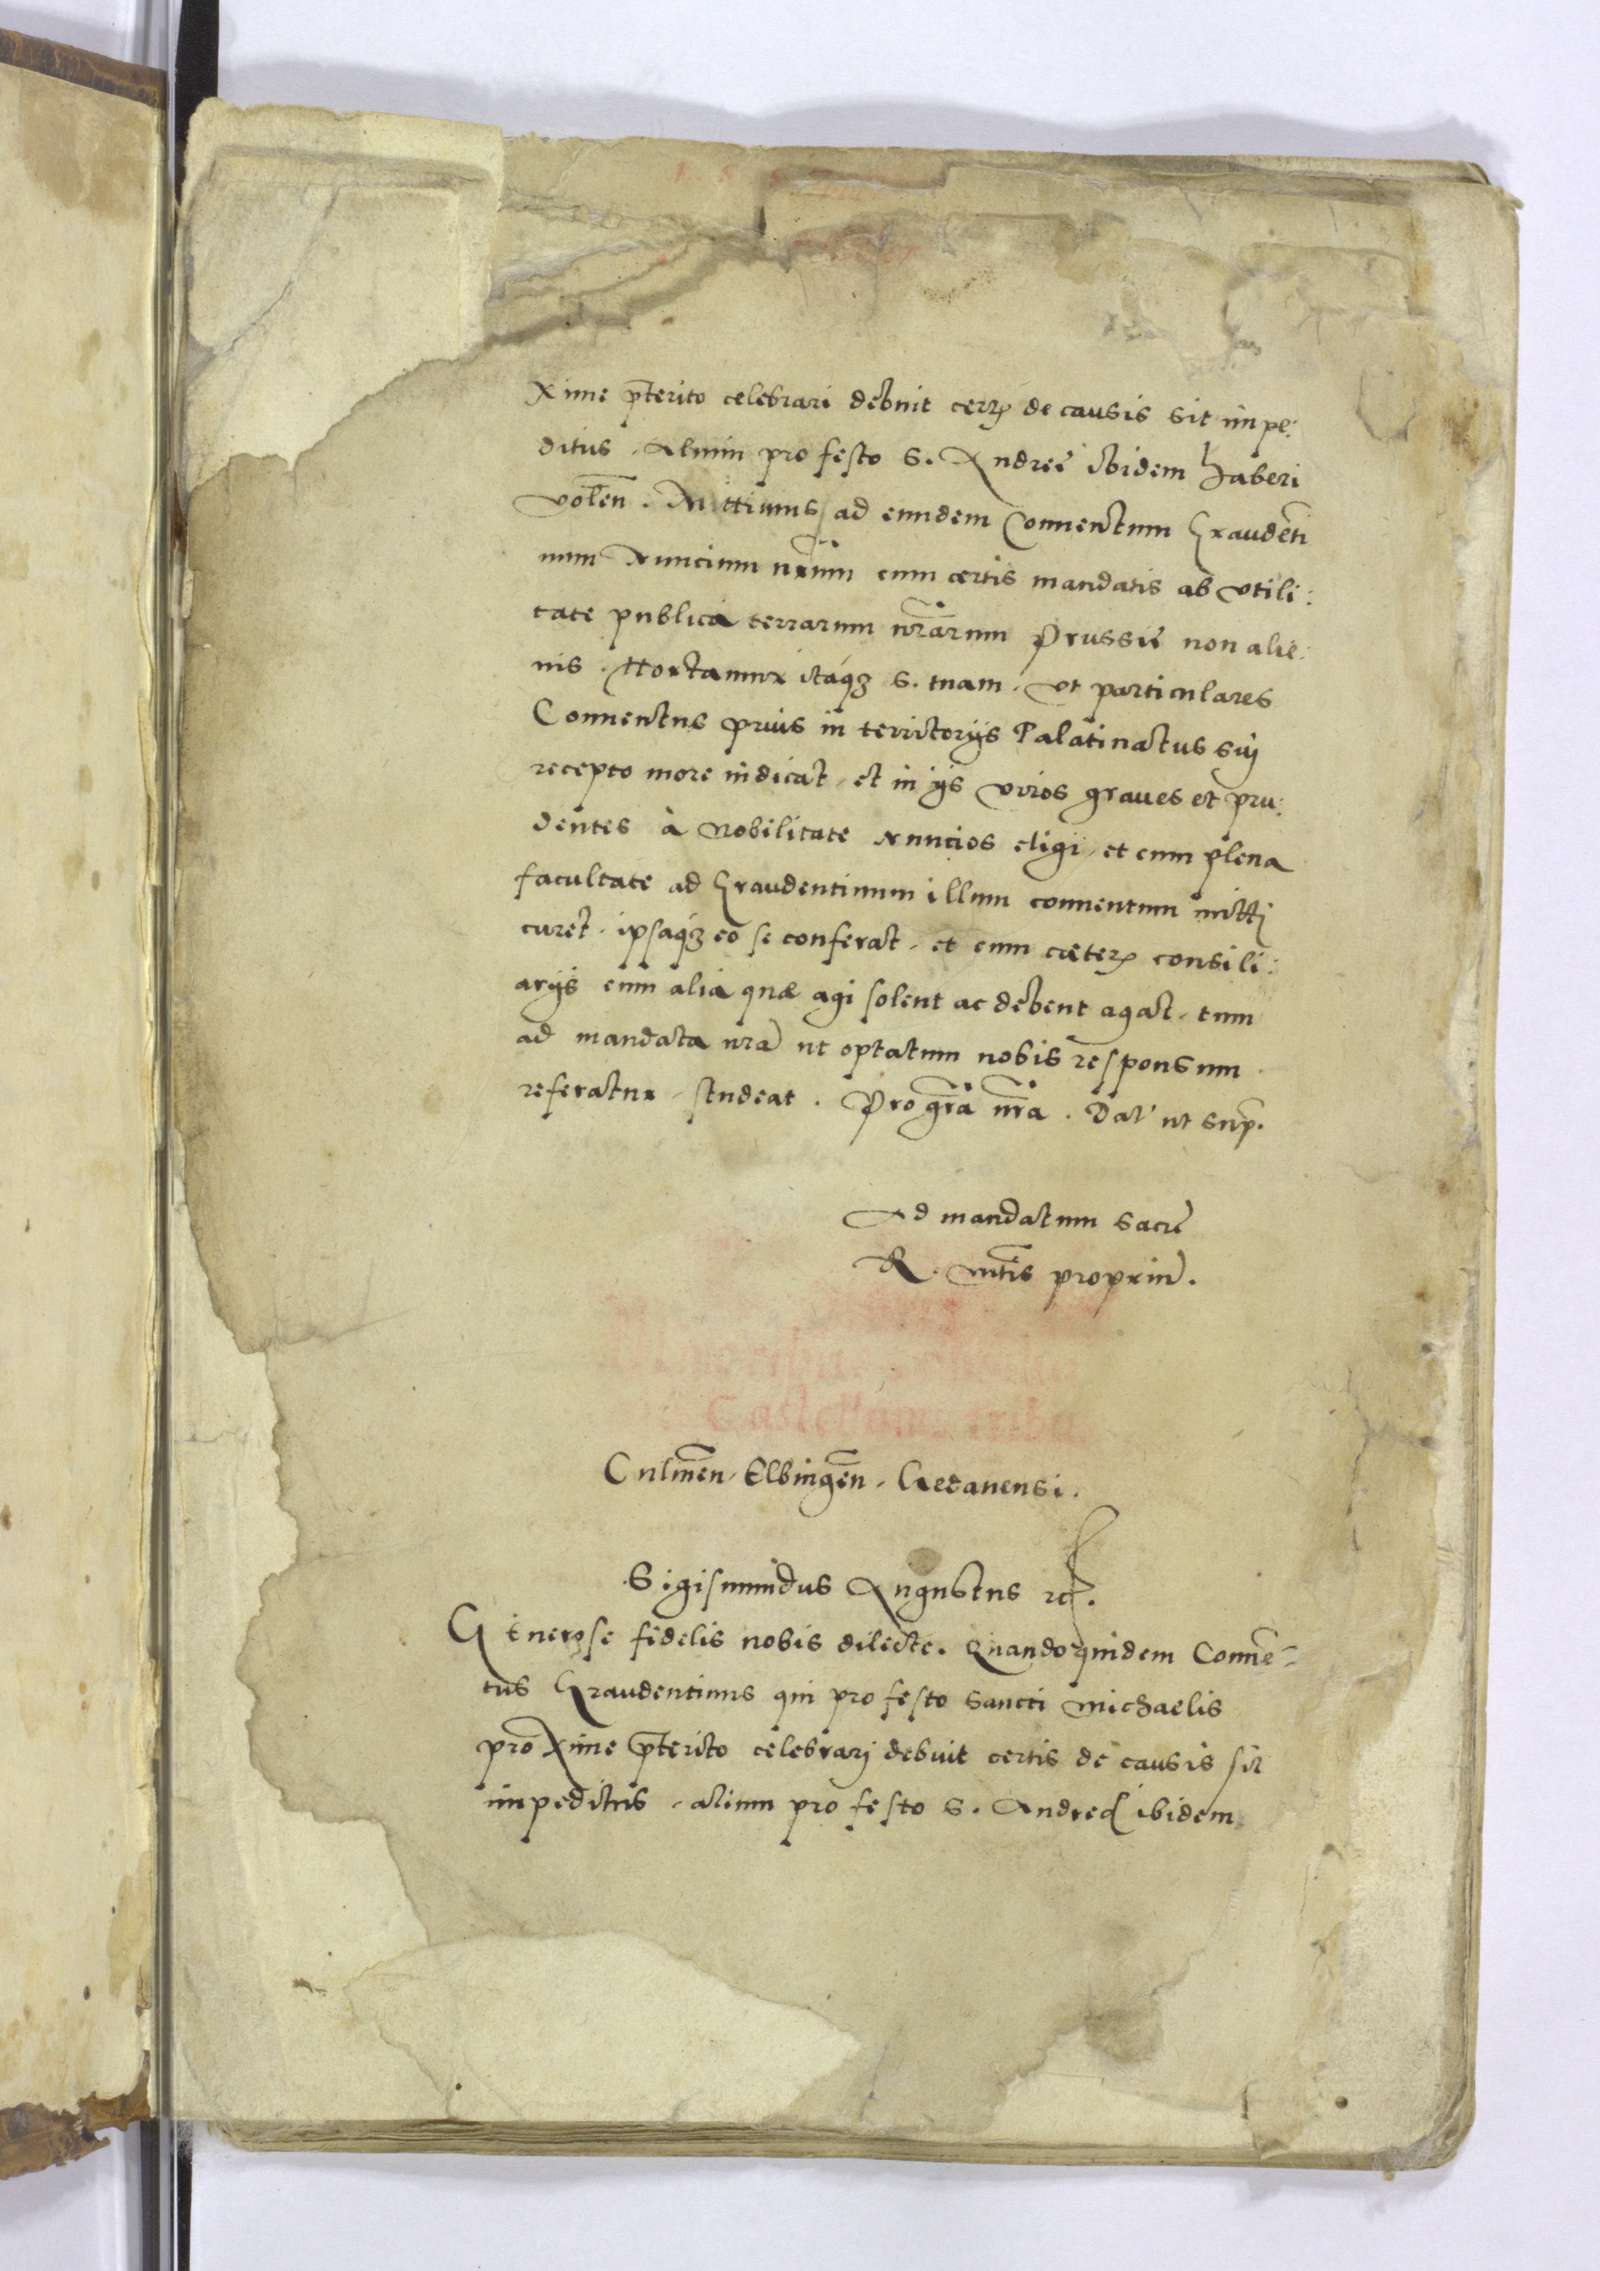 xime pterito celebrari debuit certis de causis sit impe:
ditus. Alium pro festo S. Andreę ibidem haberi
volen. Mittimus ad eundem Conuentum Graudenti
num Nuncium nrum cum certis mandatis ab vtili:
tate publica terrarum nrarum Prussię non alie:
nis. Hortamur itaq3 S. tuam. Vt particulares
Conuentus prius in territorijs Palatinatus sui
recepto more indicat, et in ijs viros graues et pru:
dentes à Nobilitate nuncios eligi, et cum plena
facultate ad Graudentinum illum conuentum mitti
curet, ipsaq3 eo se conferat, et cum cæteris consili:
arijs cum alia quæ agi solent ac debent agat, tum
ad mandata nra ut optatum nobis responsum
referatur, studeat. Pro gra nra. Dat' ut sup.
Ad mandatum Sacrę
R. mtis proprium.
Castellanis tribus
Culmen. Elbingen. Gedanensi.
Sigismundus Augustus rc.
Generose fidelis nobis dilecte. Quandoquidem Conue=
tus Graudentinus qui pro festo Sancti Michaelis
proxime pterito celebrari debuit certis de causis sit
impeditus, alium pro festo S. Andreę ibidem